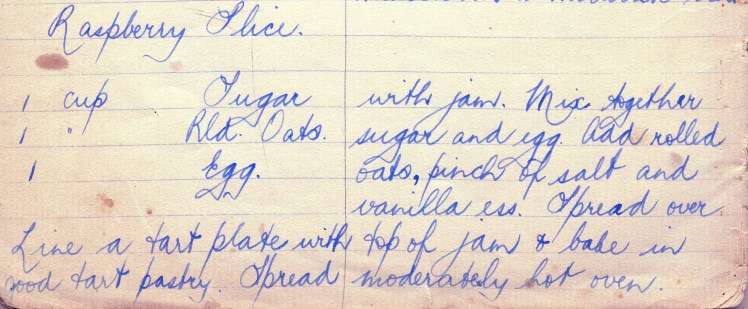 Raspberry Slice.
1 cup Sugar
1 " Rld. Oats.
1 Egg.
Line a tart plate with
good tart pastry. Spread
with jam. Mix together
sugar and egg. Add rolled
oats, pinch of salt and
vanilla ess. Spread over
top of jam & bake in
moderately hot oven.